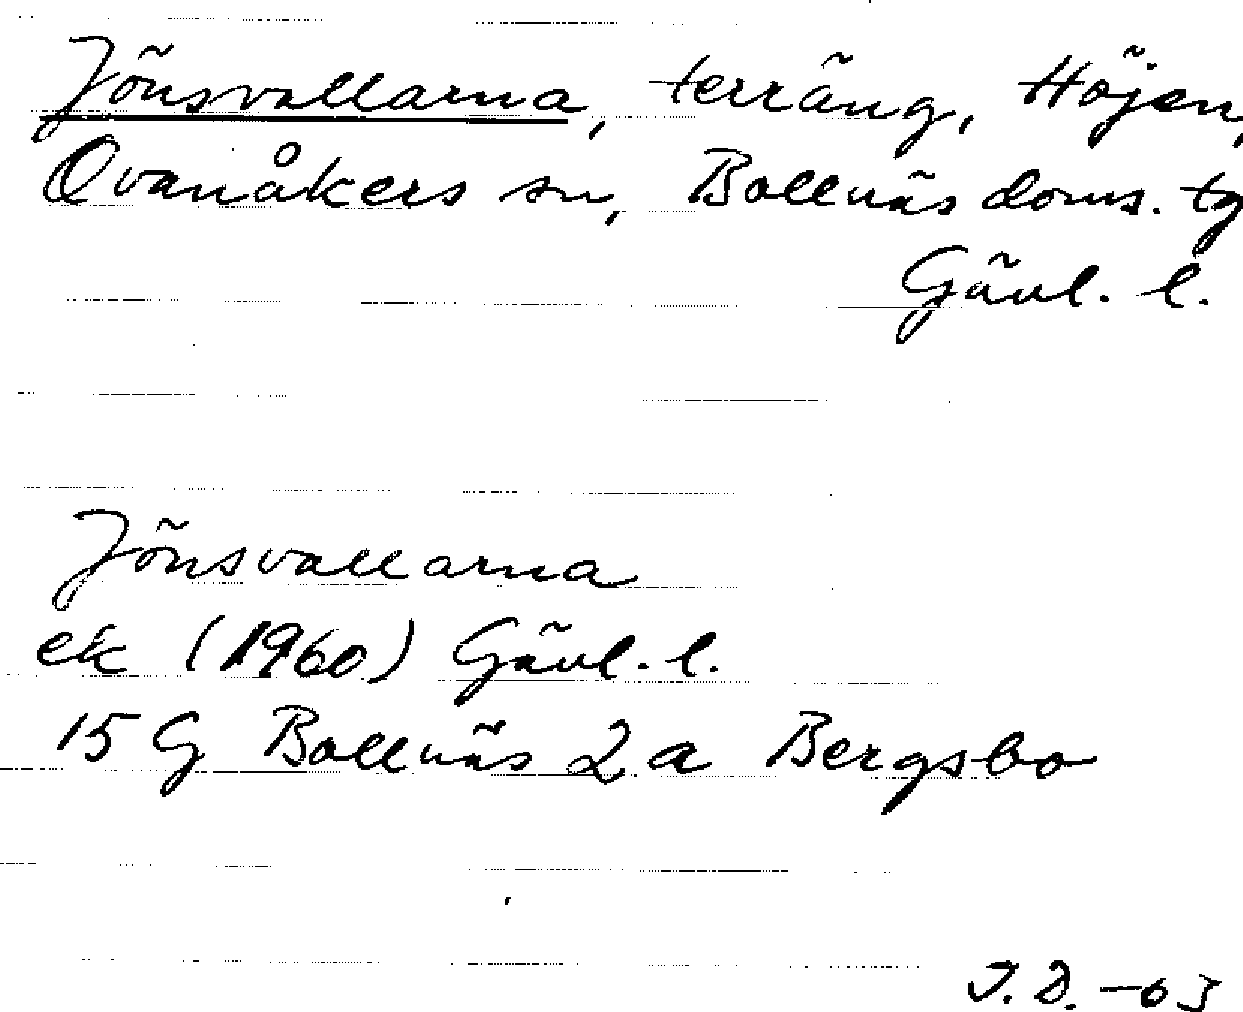 Jönsvallarna, terräng, Höjen,
Ovanåkers sn, Bollnäs doms. tg
Gävl. l.
Jönsvallarna
ek (1960) Gävl. l.
15 G Bollnäs 2 a Bergsbo
J. D. -63